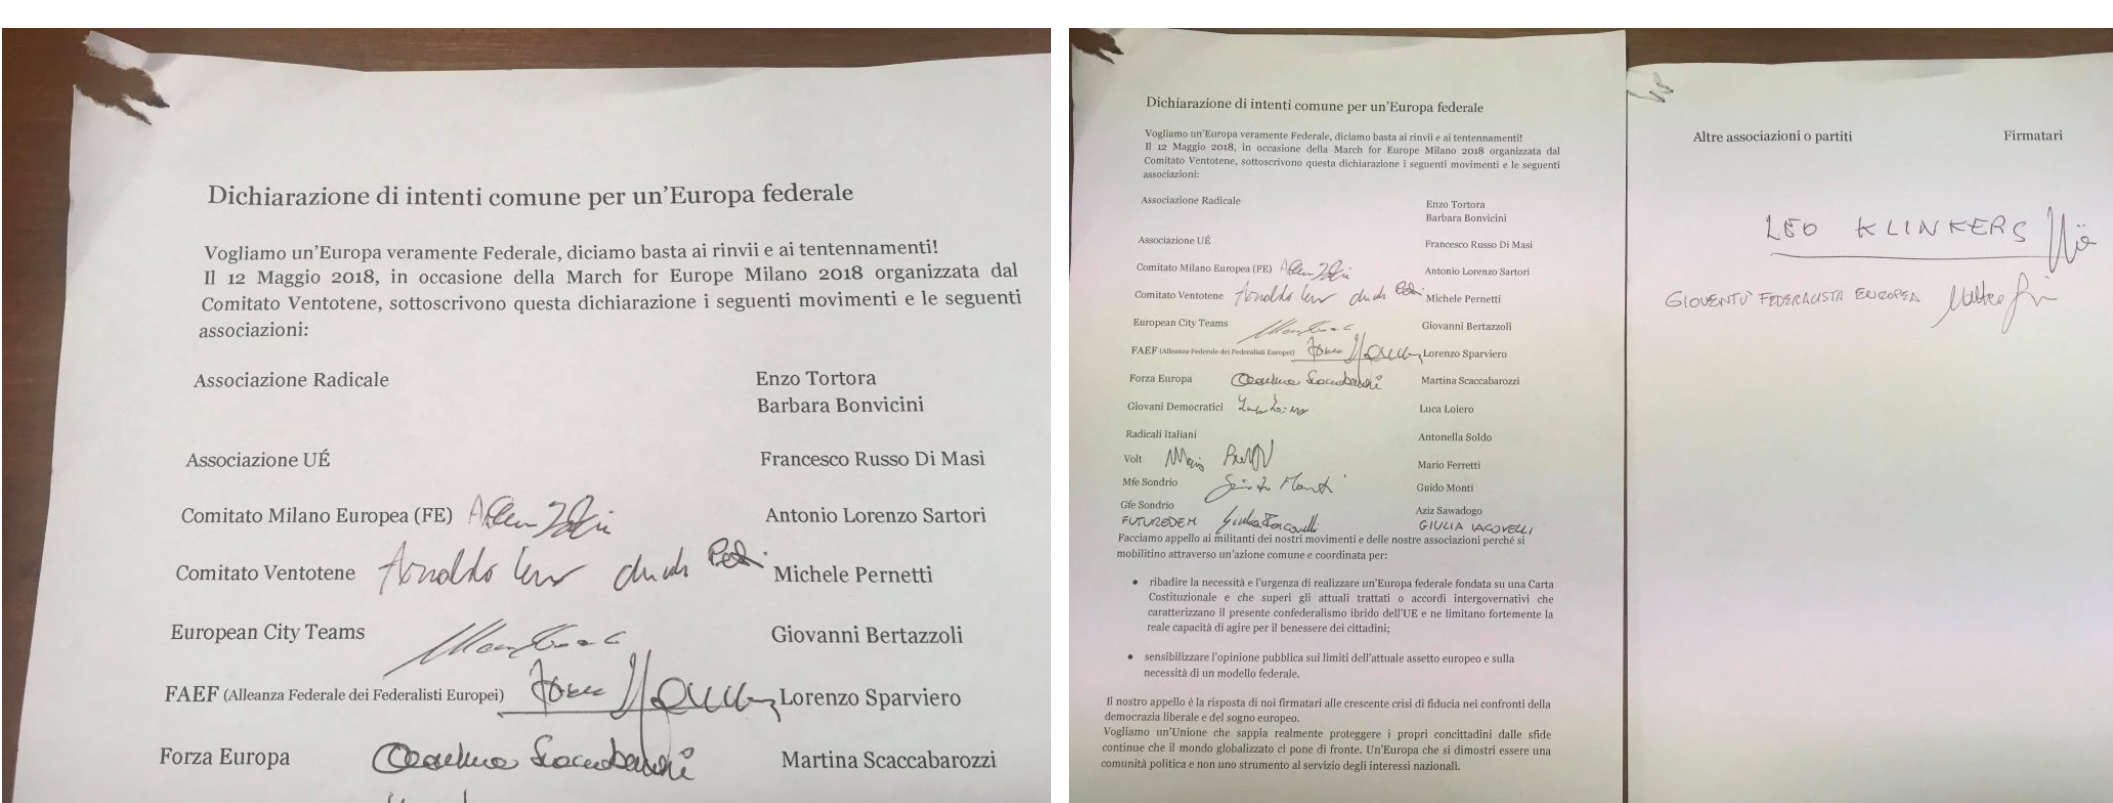 Dichiarazione di intenti comune per un'Europa federale
Vogliamo un'Europa veramente Federale, diciamo basta ai rinvii e ai tentennamenti!
Il 12 Maggio 2018, in occasione della March for Europe Milano 2018 organizzata dal
Comitato Ventotene, sottoscrivono questa dichiarazione i seguenti movimenti e le seguenti
associazioni:
Associazione Radicale Enzo Tortora
Barbara Bonvicini
Associazione UÉ Francesco Russo Di Masi
Comitato Milano Europea (FE) Antonio Lorenzo Sartori
Comitato Ventotene Arnoldo Michele Pernetti
European City Teams Giovanni Bertazzoli
FAEF (Alleanza Federale dei Federalisti Europei) Lorenzo Sparviero
Forza Europa Martina Scaccabarozzi
Dichiarazione di intenti comune per un'Europa federale
Vogliamo un'Europa veramente Federale, diciamo basta ai rinvii e ai tentennamenti!
Il 12 Maggio 2018, in occasione della March for Europe Milano 2018 organizzata dal
Comitato Ventotene, sottoscrivono questa dichiarazione i seguenti movimenti e le seguenti
associazioni:
Associazione Radicale Enzo Tortora
Barbara Bonvicini
Associazione UÉ Francesco Russo Di Masi
Comitato Milano Europea (FE) Antonio Lorenzo Sartori
Comitato Ventotene Arnoldo Michele Pernetti
European City Teams Giovanni Bertazzoli
FAEF (Alleanza Federale dei Federalisti Europei) Lorenzo Sparviero
Forza Europa Martina Scaccabarozzi
Giovani Democratici Luca Loiero
Radicali Italiani Antonella Soldo
Volt Mario Ferretti
Mfe Sondrio Guido Monti
Gfe Sondrio Aziz Sawadogo
FUTUREDEM GIULIA IACOVELLI
Facciamo appello ai militanti dei nostri movimenti e delle nostre associazioni perché si
mobilitino attraverso un'azione comune e coordinata per:
• ribadire la necessità e l'urgenza di realizzare un'Europa federale fondata su una Carta
Costituzionale e che superi gli attuali trattati o accordi intergovernativi che
caratterizzano il presente confederalismo ibrido dell'UE e ne limitano fortemente la
reale capacità di agire per il benessere dei cittadini;
• sensibilizzare l'opinione pubblica sui limiti dell'attuale assetto europeo e sulla
necessità di un modello federale.
Il nostro appello è la risposta di noi firmatari alle crescente crisi di fiducia nei confronti della
democrazia liberale e del sogno europeo.
Vogliamo un'Unione che sappia realmente proteggere i propri concittadini dalle sfide
continue che il mondo globalizzato ci pone di fronte. Un'Europa che si dimostri essere una
comunità politica e non uno strumento al servizio degli interessi nazionali.
Altre associazioni o partiti Firmatari
LEO KLINKERS
GIOVENTÙ FEDERALISTA EUROPEA